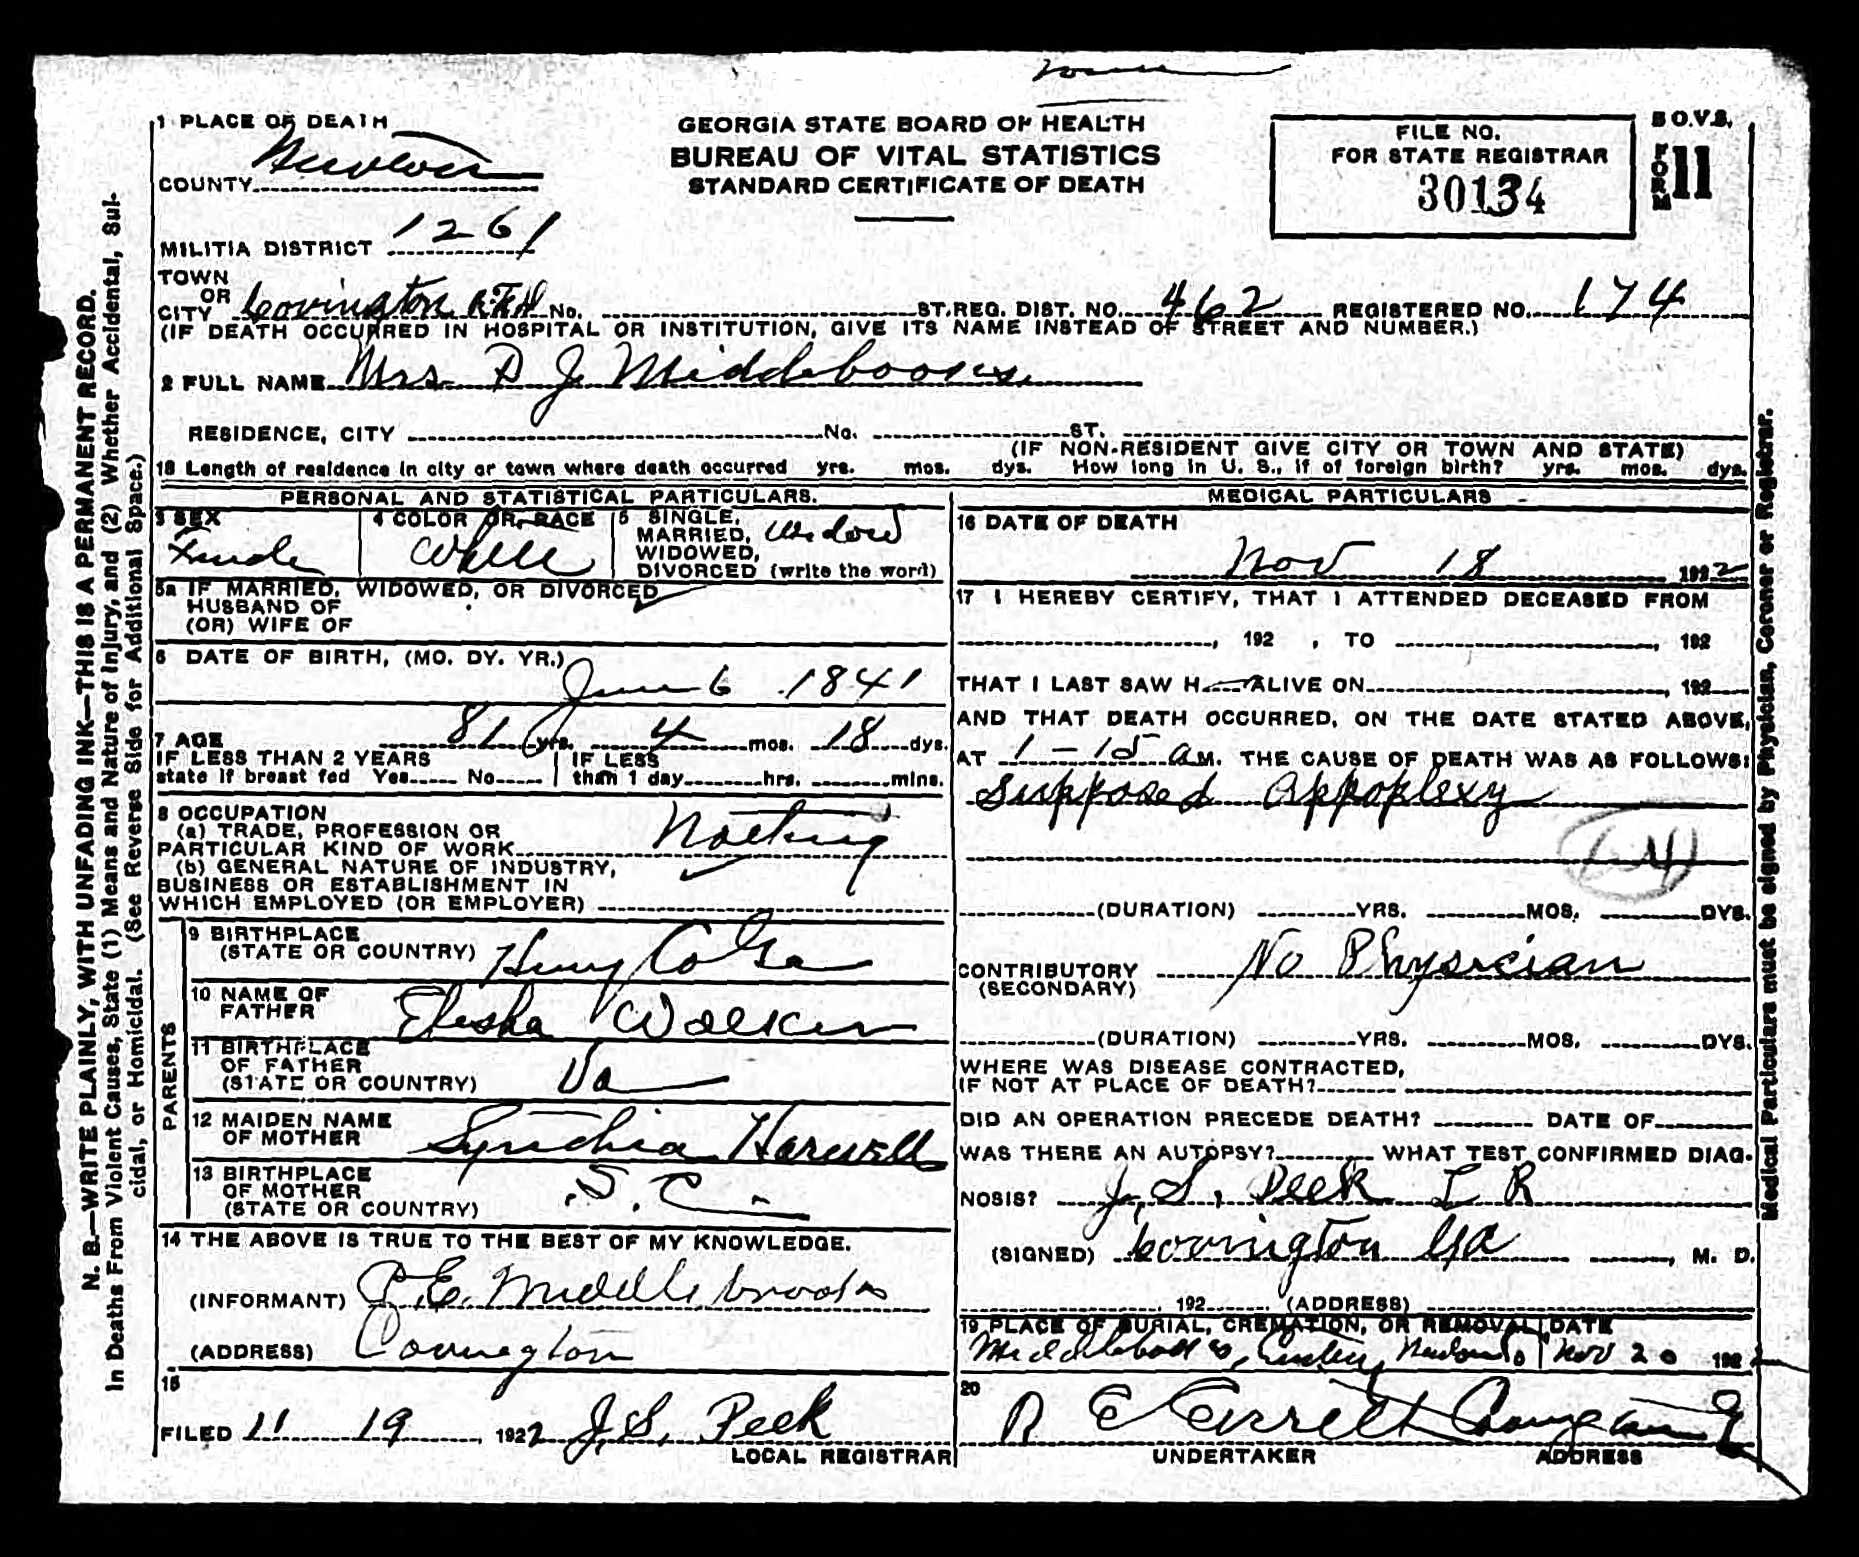 1 PLACE OF DEATH
COUNTY Newton
MILITIA DISTRICT 1261
TOWN
OR
CITY Covington R.F.D No. ST. REG. DIST. NO. 462 REGISTERED NO. 174
(IF DEATH OCCURRED IN HOSPITAL OR INSTITUTION, GIVE ITS NAME INSTEAD OF STREET AND NUMBER.)
GEORGIA STATE BOARD OF HEALTH
BUREAU OF VITAL STATISTICS
STANDARD CERTIFICATE OF DEATH
FILE NO.
FOR STATE REGISTRAR
30134
B O.V.S.
FORM 11
2 FULL NAME Mrs. P J Middlebooks
RESIDENCE, CITY No. ST.
(IF NON-RESIDENT GIVE CITY OR TOWN AND STATE)
18 Length of residence in city or town where death occurred yrs. mos. dys. How long in U. S., if of foreign birth? yrs. mos. dys.
PERSONAL AND STATISTICAL PARTICULARS.
3 SEX
Female
4 COLOR OR RACE
White
5 SINGLE,
MARRIED, Widow
WIDOWED,
DIVORCED (write the word)
5a IF MARRIED, WIDOWED, OR DIVORCED
HUSBAND OF
(OR) WIFE OF
6 DATE OF BIRTH, (MO. DY. YR.)
June 6 1841
7 AGE 81 yrs. 4 mos. 18 dys.
IF LESS THAN 2 YEARS
state if breast fed Yes No
IF LESS
than 1 day hrs. mins.
8 OCCUPATION
(a) TRADE, PROFESSION OR
PARTICULAR KIND OF WORK Nothing
(b) GENERAL NATURE OF INDUSTRY,
BUSINESS OR ESTABLISHMENT IN
WHICH EMPLOYED (OR EMPLOYER)
PARENTS
9 BIRTHPLACE
(STATE OR COUNTRY) Henry Co Ga
10 NAME OF
FATHER Elisha Walker
11 BIRTHPLACE
OF FATHER
(STATE OR COUNTRY) Va
12 MAIDEN NAME
OF MOTHER Synthia Harwell
13 BIRTHPLACE
OF MOTHER
(STATE OR COUNTRY) S. C.
14 THE ABOVE IS TRUE TO THE BEST OF MY KNOWLEDGE.
(INFORMANT) P. E. Middlebrooks
(ADDRESS) Covington
15
FILED 11 19, 1922 J. S. Peek
LOCAL REGISTRAR
MEDICAL PARTICULARS
16 DATE OF DEATH
Nov 18 1922
17 I HEREBY CERTIFY, THAT I ATTENDED DECEASED FROM
, 192 , TO , 192
THAT I LAST SAW H ALIVE ON , 192
AND THAT DEATH OCCURRED, ON THE DATE STATED ABOVE,
AT 1-15 a M. THE CAUSE OF DEATH WAS AS FOLLOWS:
Supposed Appoplexy
(DURATION) YRS. MOS. DYS.
CONTRIBUTORY No Physician
(SECONDARY)
(DURATION) YRS. MOS. DYS.
WHERE WAS DISEASE CONTRACTED,
IF NOT AT PLACE OF DEATH?
DID AN OPERATION PRECEDE DEATH? DATE OF
WAS THERE AN AUTOPSY? WHAT TEST CONFIRMED DIAG-
NOSIS? J. S. Peek L R
(SIGNED) Covington Ga , M. D.
, 192 (ADDRESS)
19 PLACE OF BURIAL, CREMATION, OR REMOVAL DATE
Nov 20 192
20
R E Everett Covington
UNDERTAKER ADDRESS
N. B.—WRITE PLAINLY, WITH UNFADING INK—THIS IS A PERMANENT RECORD.
In Deaths From Violent Causes, State (1) Means and Nature of Injury, and (2) Whether Accidental, Sui-
cidal, or Homicidal. (See Reverse Side for Additional Space.)
Medical Particulars must be signed by Physician, Coroner or Registrar.